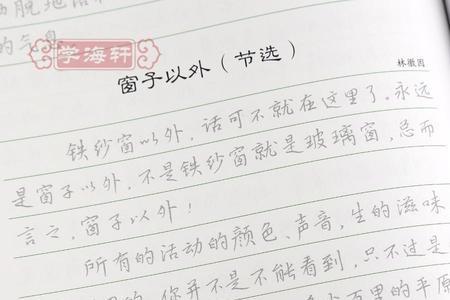 的气息
学海轩
窗子以外（节选）
林徽因
铁纱窗以外，话可不就在这里了。永远
是窗子以外，不是铁纱窗就是玻璃窗，总而
言之，窗子以外！
所有的活动的颜色、声音，生的滋味
你并不是不能看到，只不过是
百里的平原